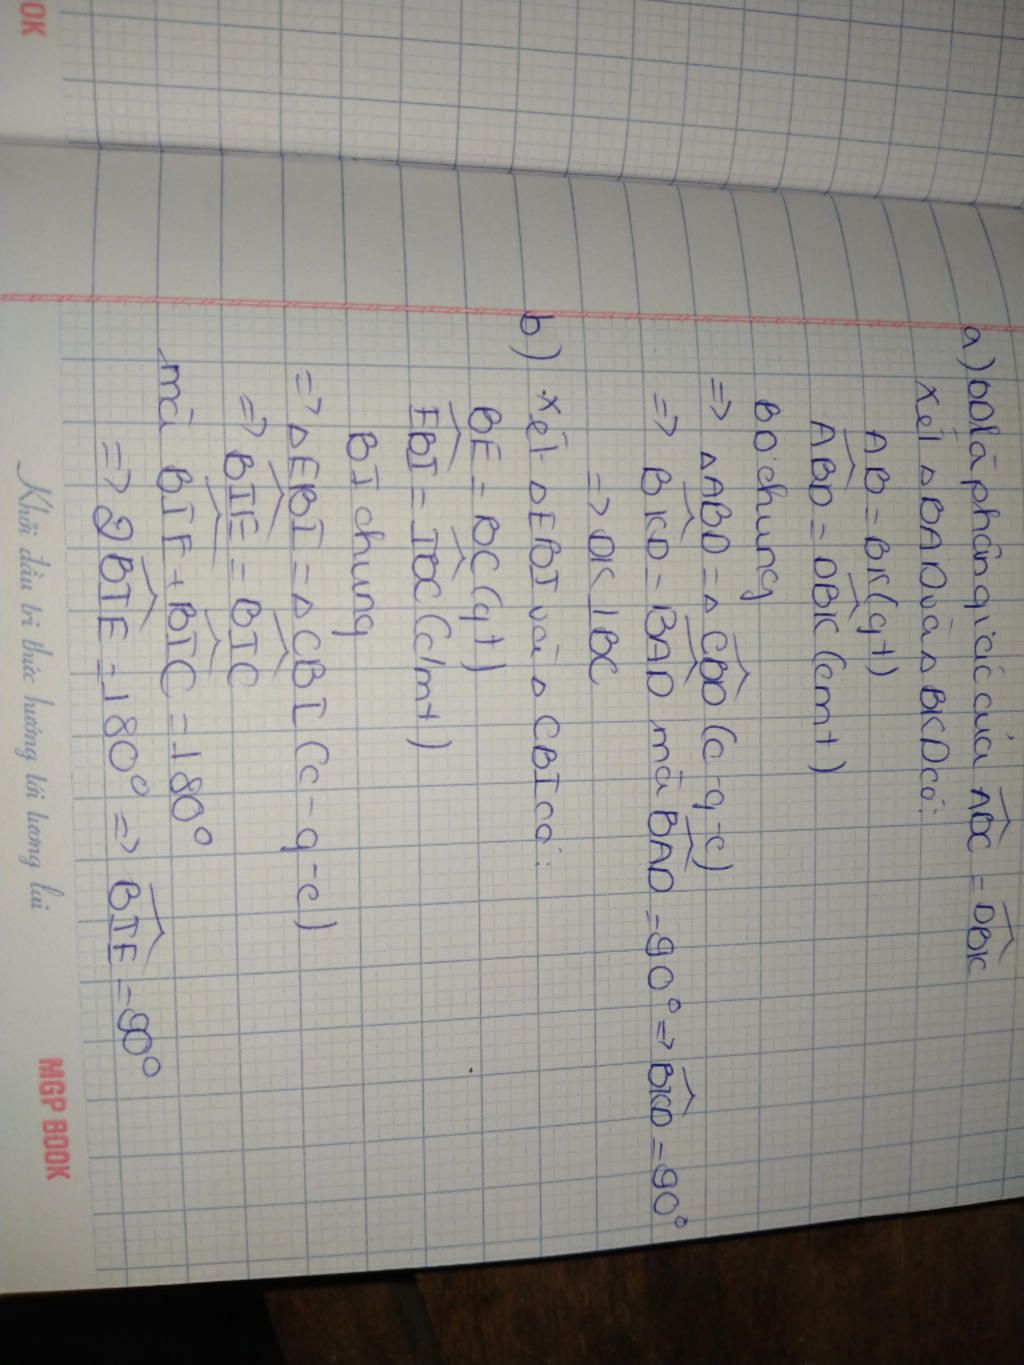 OOK
a) BD là phân giác của ABC = DBK
Xét △BAD và △BKD có:
AB = BK (gt)
ABD = DBK (cmt)
BD chung
=> △ABD = △CBD (c-g-c)
=> BKD = BAD mà BAD = 90° => BKD = 90°
=> DK ⊥ BC
b) Xét △EBI và △CBI có:
BE = BC (gt)
EBI = IBC (c/mt)
BI chung
=> △EBI = △CBI (c-g-c)
=> BIE = BIC
mà BIE + BIC = 180°
=> 2BIE = 180° => BIE = 90°
Khởi đầu tri thức hướng tới tương lai
MGP BOOK